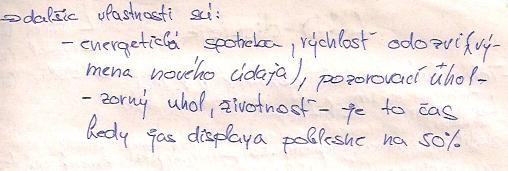 → dalšie vlastnosti sú:
- energetická spotreba, rýchlosť odozvi (vý-
mena nového údaja), pozorovací úhol -
- zorný uhol, životnosť - je to čas
kedy jas displaya poklesne na 50%